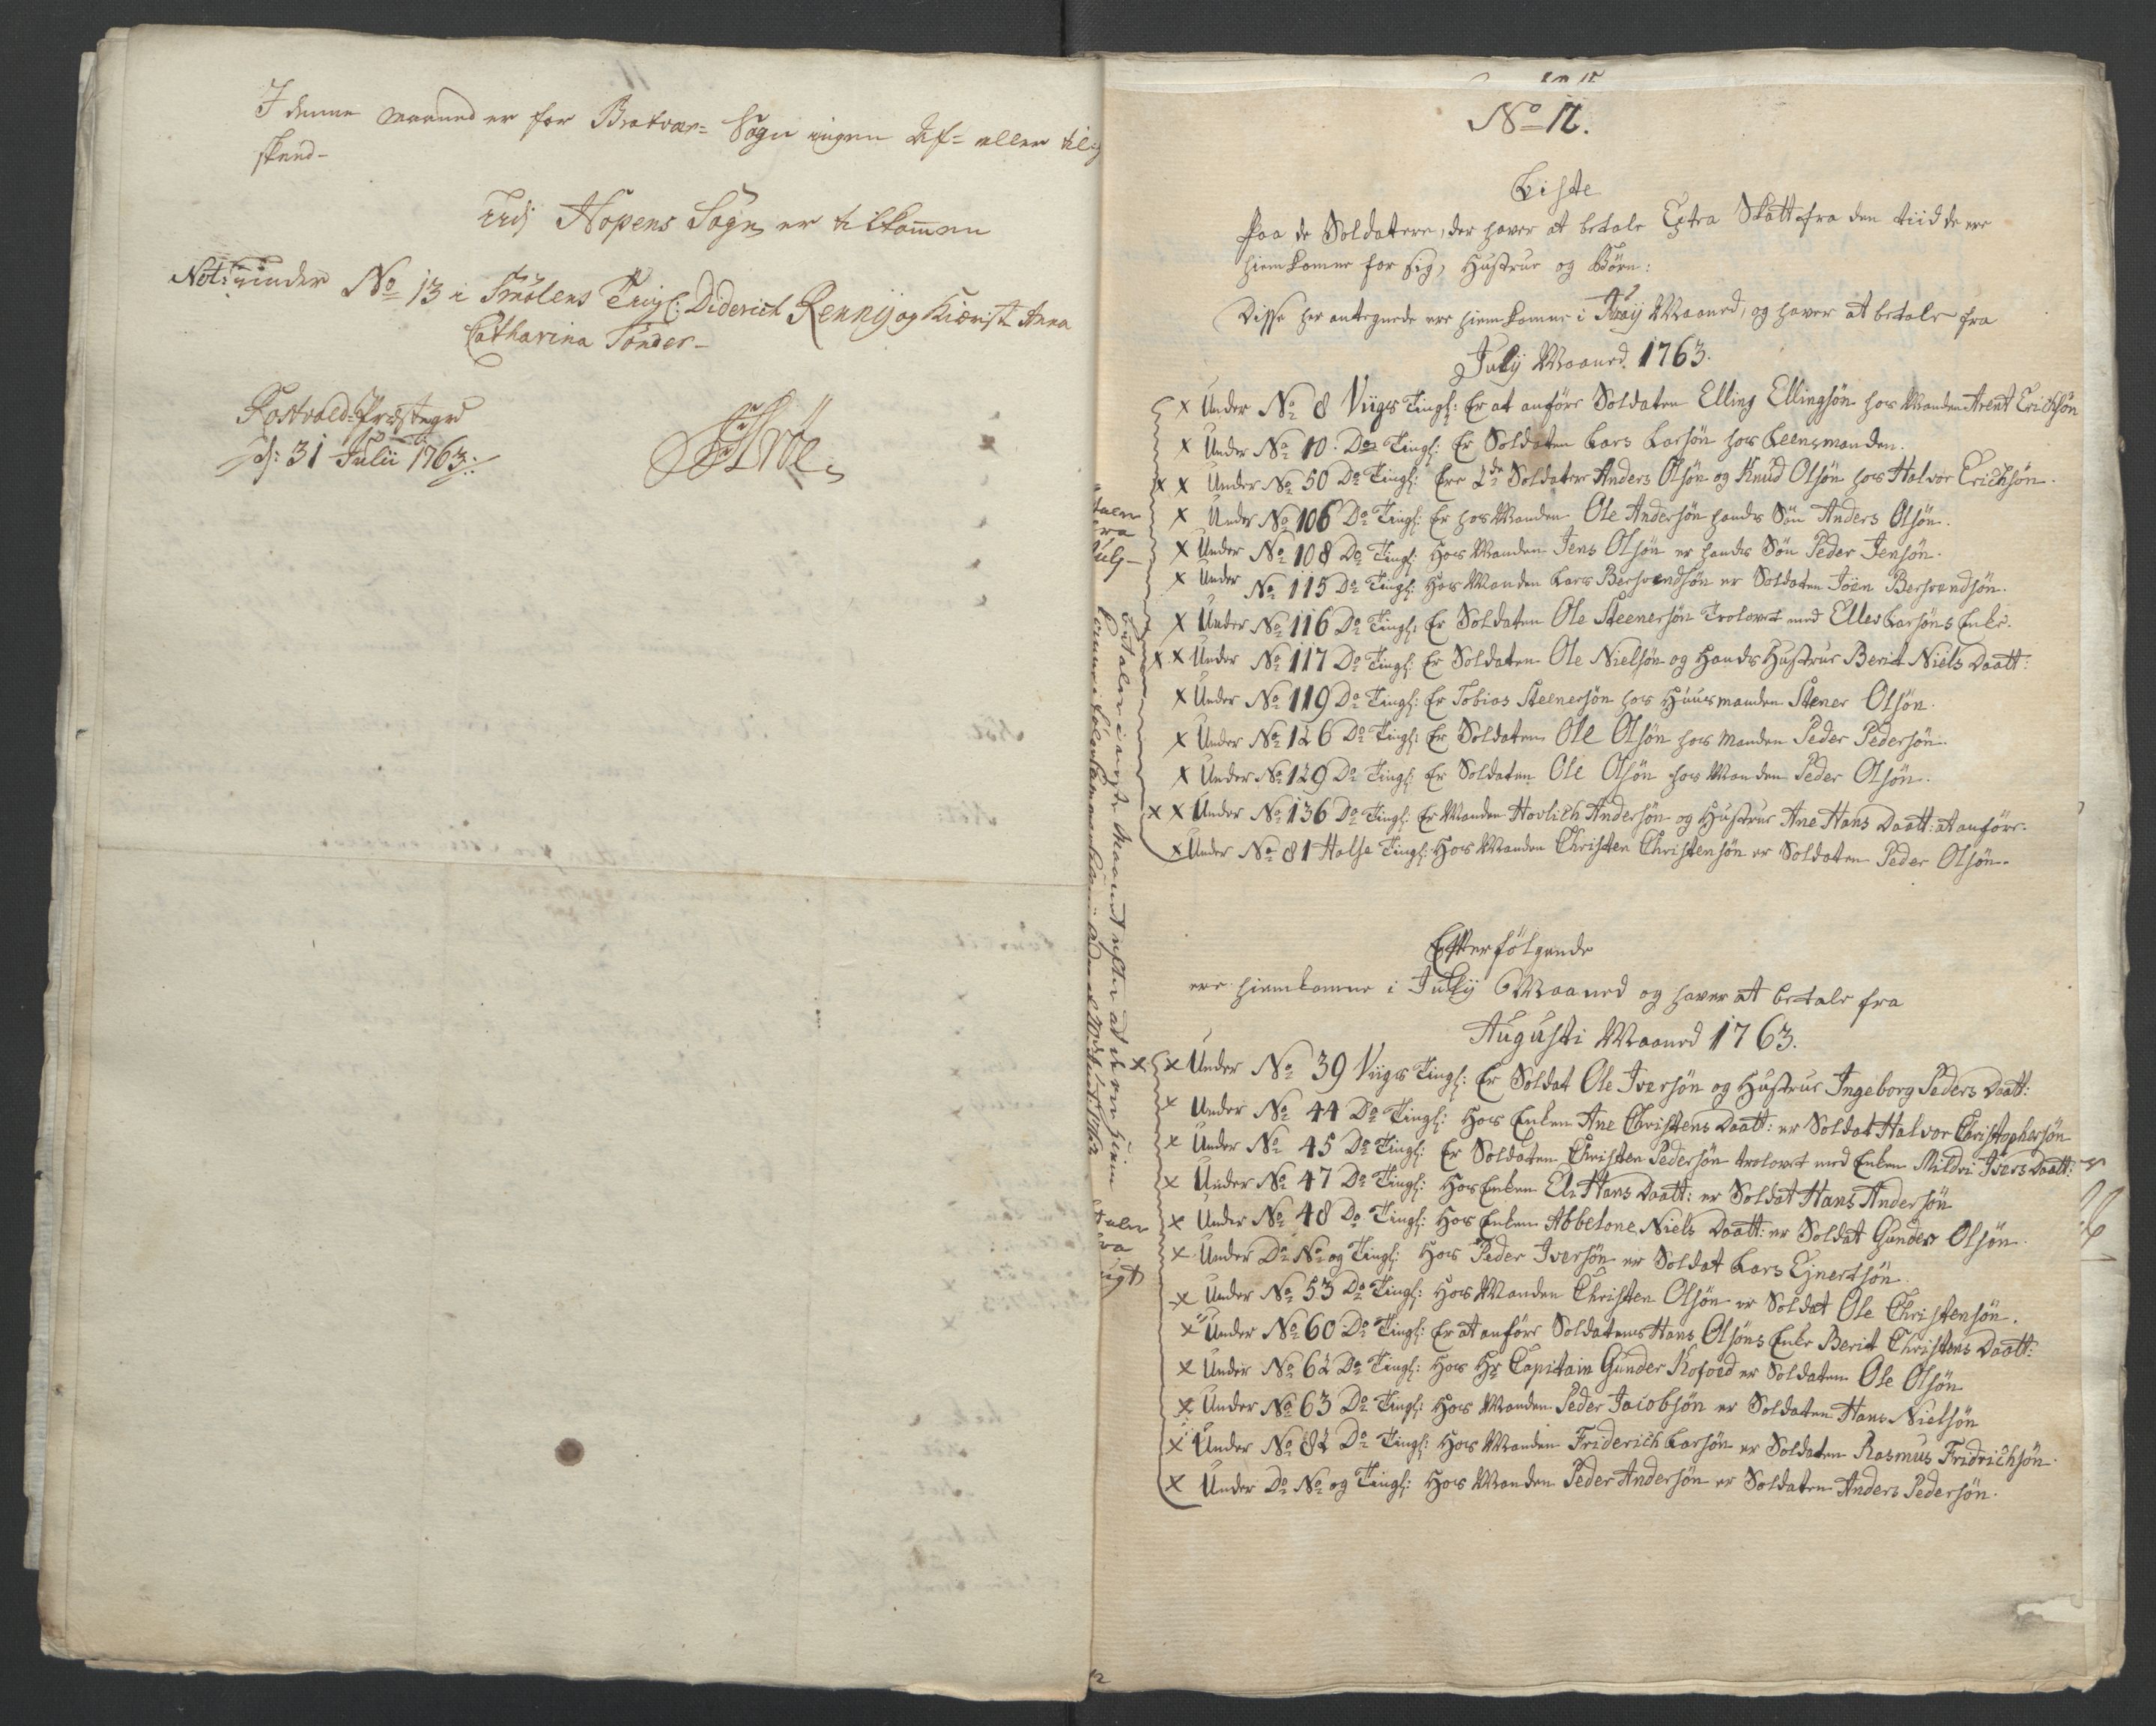 I denne Maaned er for Bratvær= Sogn ingen Af= eller til=
skud-
Udj Hopens Sogn er tilkommen
Not: under No 13 i Smölens Tingl: Diderich Rennij og Kiæriste Anna
Catharina Sönder-
Præstegrd
d: 31 Julii 1763.
No 12.
Liste
Paa de Soldatere, der haver at betale Extra Skatt fra den tiid de ere
hiemkomne for sig, Hustrue og Börn:
Disse her antegnede ere hiemkomne i Maaned, og haver at betale fra
July Maaned 1763.
x Under No 8 Viigs Tingl: Er at anföre Soldaten Elling Ellingsön hos Manden Arent Erichsön
x Under No 10. Do Tingl: Er Soldaten Lars Larsön hos Leensmanden.
x x Under No 50 Do Tingl: Ere 2de Soldater Anders Olsön og Knud Olsön hos Halvor Erichsön.
x Under No 106 Do Tingl: Er hos Manden Ole Andersön hands Sön Anders Olsön.
x Under No 108 Do Tingl: Hos Manden Jens Olsön er hands Sön Peder Jensön.
x Under No 115 Do Tingl: Hos Manden Lars Bersvendsön er Soldaten Joen Bersvendsön.
x Under No 116 Do Tingl: Er Soldaten Ole Steenersön Trolovet med Elles Larsöns Enke.
x x Under No 117 Do Tingl: Er Soldaten Ole Nielsön og Hands Hustrue Berit Niels Daatt:
x Under No 119 Do Tingl: Er Tobias Steenersön hos Huusmanden Stener Olsön.
x Under No 126 Do Tingl: Er Soldaten Ole Olsön hos Manden Peder Pedersön.
x Under No 129 Do Tingl: Er Soldaten Ole Olsön hos Manden Peder Olsön.
x x Under No 136 Do Tingl: Er Manden Hovlich Andersön og Hustrue Ane Hans Daatt: at anföre.
x Under No 81 Halse Tingl: Hos Manden Christen Christensön er Soldaten Peder Olsön.
Efterfölgende
ere hiemkomne i July Maaned og haver at betale fra
Augusti Maaned 1763.
x x Under No 39 Viigs Tingl: Er Soldat Ole Iversön og Hustrue Ingeborg Peders Daatt:
x Under No 44 Do Tingl: Hos Enken Ane Christens Daatt: er Soldat Halvor Christophersön
x Under No 45 Do Tingl: Er Soldaten Christen Pedersön trolovet med Enken Mildri Ivers Daatt:
x Under No 47 Do Tingl: Hos Enken Eli Hans Daatt: er Soldat Hans Andersön
x Under No 48 Do Tingl: Hos Enken Abbelone Niels Daatt: er Soldat Gunder Olsön.
x Under Do No og Tingl: Hos Peder Iversön er Soldat Lars Ejnertsön.
x Under No 53 Do Tingl: Hos Manden Christen Olsön er Soldat Ole Christensön.
x Under No 60 Do Tingl: Er at anföre Soldatens Hans Olsöns Enke Berit Christens Daatt:
x Under No 62 Do Tingl: Hos Hr Capitain Gunder Kofoed er Soldaten Ole Olsön
x Under No 63 Do Tingl: Hos Manden Peder Jacobsön er Soldaten Hans Nielsön
x Under No 82 Do Tingl: Hos Manden Friderich Larsön er Soldaten Rasmus Fridrichsön.
x Under Do No og Tingl: Hos Manden Peder Andersön er Soldaten Anders Pedersön.